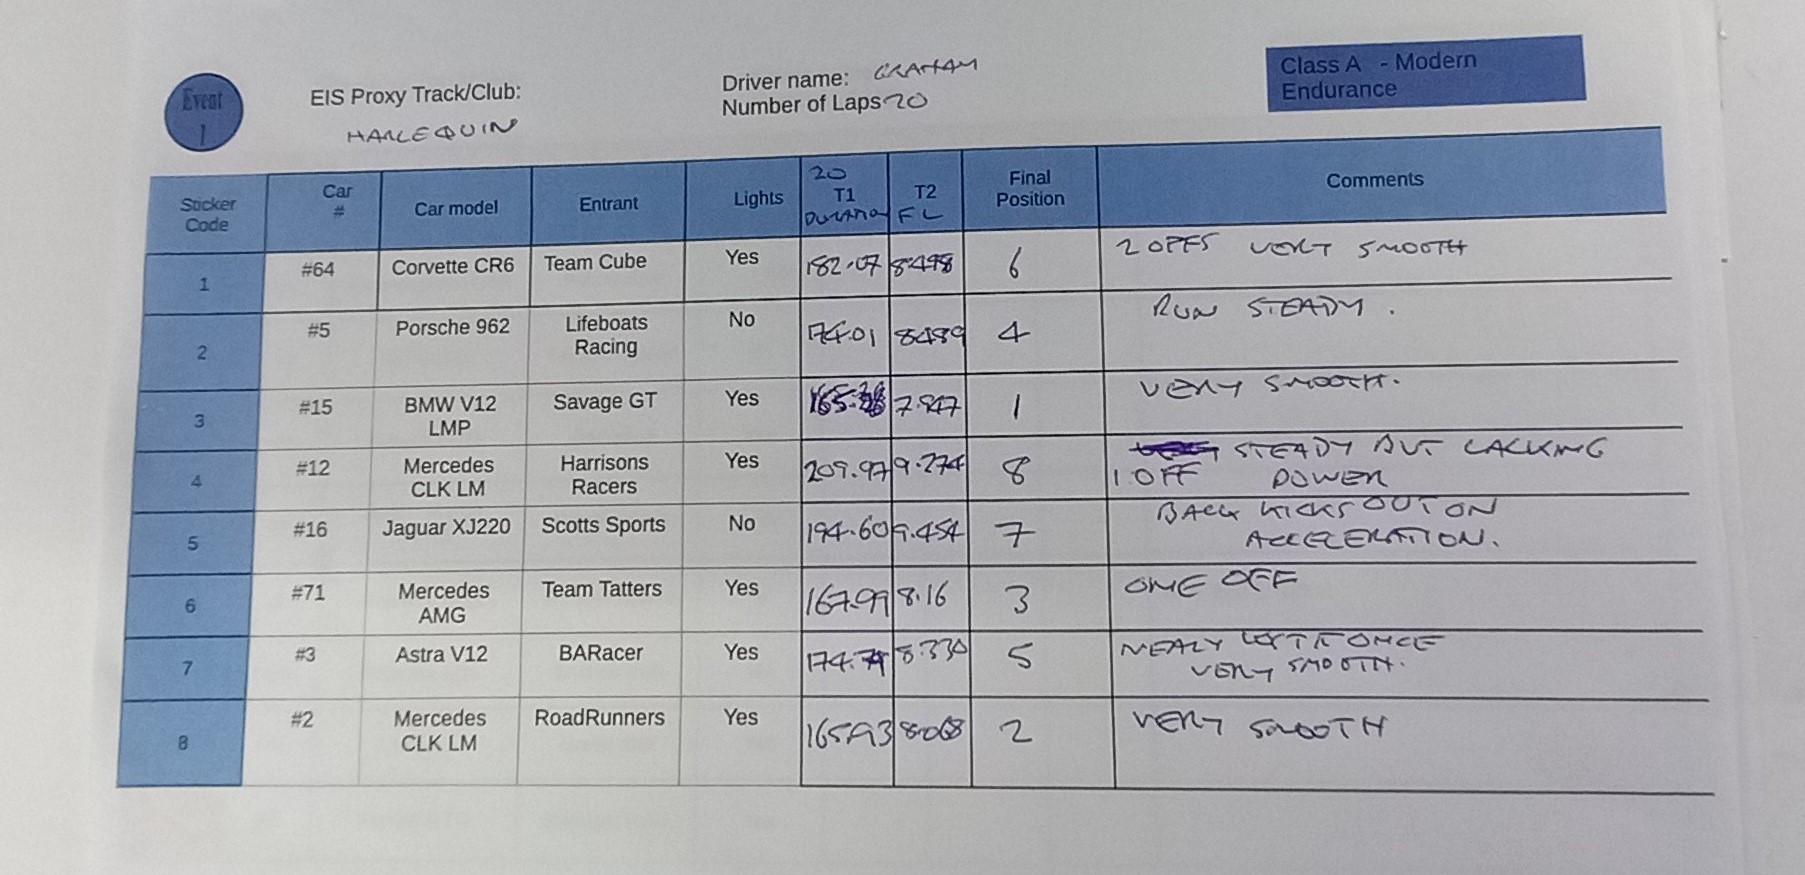 Event
1
EIS Proxy Track/Club:
HARLEQUIN
Driver name: GRAHAM
Number of Laps 20
Class A - Modern
Endurance
Sticker Code Car # Car model Entrant Lights 20 T1 DURATION T2 FL Final Position Comments
1 #64 Corvette CR6 Team Cube Yes 182.07 8.498 6 2 OFFS VERY SMOOTH
2 #5 Porsche 962 Lifeboats Racing No 174.01 8.489 4 RUN STEADY.
3 #15 BMW V12 LMP Savage GT Yes 7.947 1 VERY SMOOTH.
4 #12 Mercedes CLK LM Harrisons Racers Yes 209.97 9.274 8 STEADY BUT LACKING
1 OFF POWER
5 #16 Jaguar XJ220 Scotts Sports No 194.60 9.454 7 BACK KICKS OUT ON
ACCELERATION.
6 #71 Mercedes AMG Team Tatters Yes 167.99 8.16 3 ONE OFF
7 #3 Astra V12 BARacer Yes 8.330 5 NEALY ONCE
VERY SMOOTH.
8 #2 Mercedes CLK LM RoadRunners Yes 165.93 8.068 2 VERY SMOOTH